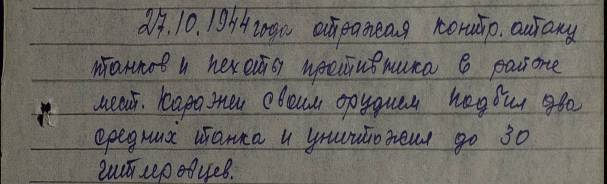 27.10.1944 года отражая контр. атаку
танков и пехоты противника в районе
мест. Каражен своим орудием подбил два
средних танка и уничтожил до 30
гитлеровцев.